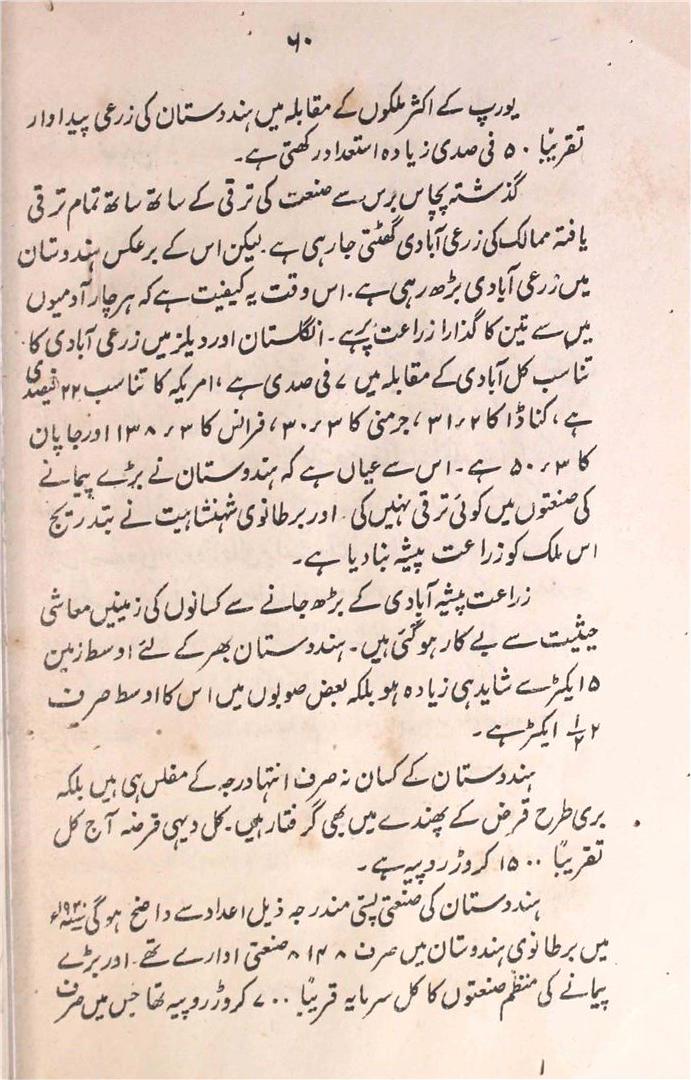 ۶۰
یورپ کے اکثر ملکوں کے مقابلہ میں ہندوستان کی زرعی پیداوار
تقریبًا ۵۰ فی صدی زیادہ استعداد رکھتی ہے۔
گذشتہ پچاس برس سے صنعت کی ترقی کے ساتھ ساتھ تمام ترقی
یافتہ ممالک کی زرعی آبادی گھٹتی جا رہی ہے۔ لیکن اس کے برعکس ہندوستان
میں زرعی آبادی بڑھ رہی ہے۔ اس وقت یہ کیفیت ہے کہ ہر چار آدمیوں
میں سے تین کا گذارا زراعت پر ہے۔ انگلستان اور ویلز میں زرعی آبادی کا
تناسب کل آبادی کے مقابلہ میں ۷ فی صدی ہے، امریکہ کا تناسب ۲۲ فیصدی
ہے، کناڈا کا ۳۱٫۲، جرمنی کا ۳۰٫۳، فرانس کا ۳۸٫۳ ۱ اور جاپان
کا ۵۰٫۳ ہے۔ اس سے عیاں ہے کہ ہندوستان نے بڑے پیمانے
کی صنعتوں میں کوئی ترقی نہیں کی۔ اور برطانوی شہنشاہیت نے بتدریج
اس ملک کو زراعت پیشہ بنا دیا ہے۔
زراعت پیشہ آبادی کے بڑھ جانے سے کسانوں کی زمینیں معاشی
حیثیت سے بے کار ہو گئی ہیں۔ ہندوستان بھر کے لئے اوسط زمین
۵ ایکڑ سے شاید ہی زیادہ ہو بلکہ بعض صوبوں میں اس کا اوسط صرف
۲ ۱/۲ ایکڑ ہے۔
ہندوستان کے کسان نہ صرف انتہا درجہ کے مفلس ہی ہیں بلکہ
بری طرح قرض کے پھندے میں بھی گرفتار ہیں۔ کل دیہی قرضہ آج کل
تقریبًا ۱۵۰۰ کروڑ روپیہ ہے۔
ہندوستان کی صنعتی پستی مندرجہ ذیل اعداد سے واضح ہو گی
میں برطانوی ہندوستان میں صرف ۸۱۴۸ صنعتی ادارے تھے۔ اور بڑے
پیمانے کی منظم صنعتوں کا کل سرمایہ قریبًا ۷۰۰ کروڑ روپیہ تھا جس میں صرف